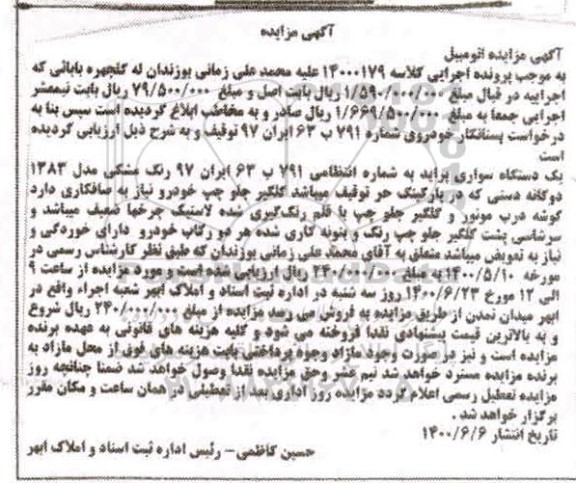 آگهی مزایده
آگهی مزایده اتومبیل
به موجب پرونده اجرایی کلاسه ۱۴۰۰۰۱۷۹ علیه محمد علی زمانی بوزندان له گلچهره بابائی که
اجراییه در قبال مبلغ ۱/۵۹۰/۰۰۰/۰۰۰ ریال بابت اصل و مبلغ ۷۹/۵۰۰/۰۰۰ ریال بابت نیمعشر
اجرایی جمعا به مبلغ ۱/۶۶۹/۵۰۰/۰۰۰ ریال صادر و به مخاطب ابلاغ گردیده است سپس بنا به
درخواست بستانکار خودروی شماره ۷۹۱ ب ۶۳ ایران ۹۷ توقیف و به شرح ذیل ارزیابی گردیده
است
یک دستگاه سواری پراید به شماره انتظامی ۷۹۱ ب ۶۳ ایران ۹۷ رنگ مشکی مدل ۱۳۸۳
دوگانه دستی که در پارکینگ حر توقیف میباشد گلگیر جلو چپ خودرو نیاز به صافکاری دارد
گوشه درب موتور و گلگیر جلو چپ با قلم رنگ‌گیری شده لاستیک چرخها ضعیف میباشد و
سرشاسی پشت گلگیر جلو چپ رنگ و بتونه کاری شده هر دو رکاب خودرو دارای خوردگی و
نیاز به تعویض میباشد متعلق به آقای محمد علی زمانی بوزندان که طبق نظر کارشناس رسمی در
مورخه ۱۴۰۰/۵/۱۰ به مبلغ ۲۴۰/۰۰۰/۰۰۰ ریال ارزیابی شده است و مورد مزایده از ساعت ۹
الی ۱۲ مورخ ۱۴۰۰/۶/۲۳ روز سه شنبه در اداره ثبت اسناد و املاک ابهر شعبه اجراء واقع در
ابهر میدان تمدن از طریق مزایده به فروش می رسد مزایده از مبلغ ۲۴۰/۰۰۰/۰۰۰ ریال شروع
و به بالاترین قیمت پیشنهادی نقدا فروخته می شود و کلیه هزینه های قانونی به عهده برنده
مزایده است و نیز در صورت وجود مازاد وجوه پرداختی بابت هزینه های فوق از محل مازاد به
برنده مزایده مسترد خواهد شد نیم عشر وحق مزایده نقدا وصول خواهد شد ضمنا چنانچه روز
مزایده تعطیل رسمی اعلام گردد مزایده روز اداری بعد از تعطیلی در همان ساعت و مکان مقرر
برگزار خواهد شد .
تاریخ انتشار ۱۴۰۰/۶/۶
حسین کاظمی – رئیس اداره ثبت اسناد و املاک ابهر